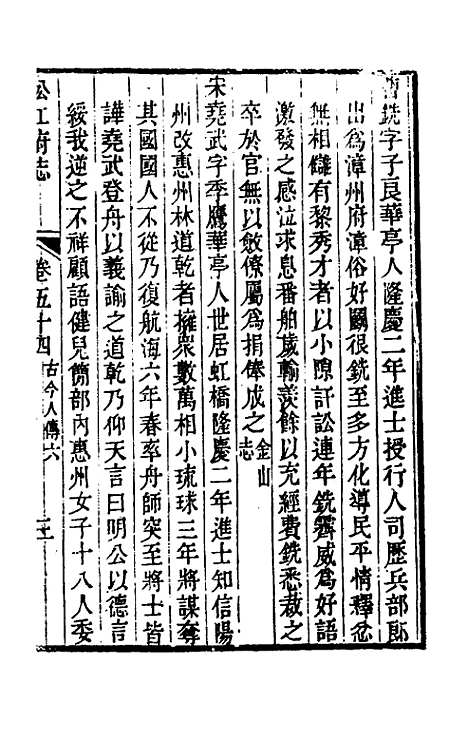 銑字子良華亭人隆慶二年進士授行人司歷兵部郎
出爲漳州府漳俗好鬬很銑至多方化導民平情釋忿
無相讎有黎秀才者以小隙訐訟連年銑霽威爲好語
激發之感泣求息番舶歲輸羨餘以充經費銑悉裁之
卒於官無以斂僚屬爲捐俸成之金山志
宋堯武字季鷹華亭人世居虹橋隆慶二年進士知信陽
州改惠州林道乾者擁衆數萬相小琉球三年將謀奪
其國國人不從乃復航海六年春率舟師突至將士皆
譁堯武登舟以義諭之道乾乃仰天言曰明公以德言
綏我逆之不祥顧語健兒簡部內惠州女子十八人委
松江府志
卷五十四古今人傳六